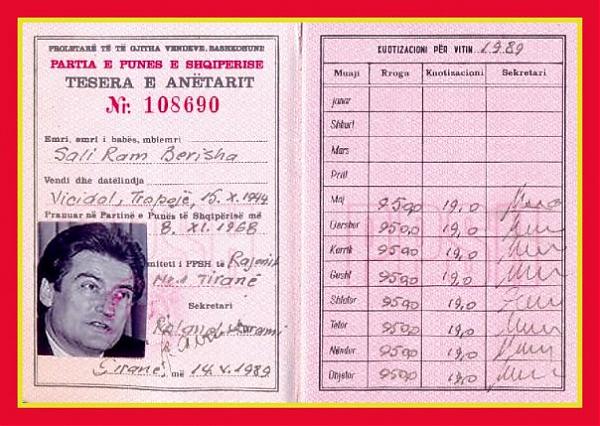 PROLETARË TË TË GJITHA VENDEVE, BASHKOHUNI!
PARTIA E PUNES E SHQIPERISE
TESERA E ANËTARIT
Nr. 108690
Emri, emri i babës, mbiemri
Sali Ram Berisha
Vendi dhe datëlindja
Vicidol, Tropojë, 15.X.1944
Pranuar në Partinë e Punës të Shqipërisë më
8. XI. 1968
miteti i PPSH të Rajonit
Tiranë
Sekretari
Tiranë, më 14.X.1989
KUOTIZACIONI PËR VITIN 1989
Muaji Rroga Kuotizacioni Sekretari
Janar
Shkurt
Mars
Prill
Maj 9590 19,0
Qershor 9590 19,0
Korrik 9590 19,0
Gusht 9590 19,0
Shtator 9590 19,0
Tetor 9590 19,0
Nëndor 9590 19,0
Dhjetor 9590 19,0